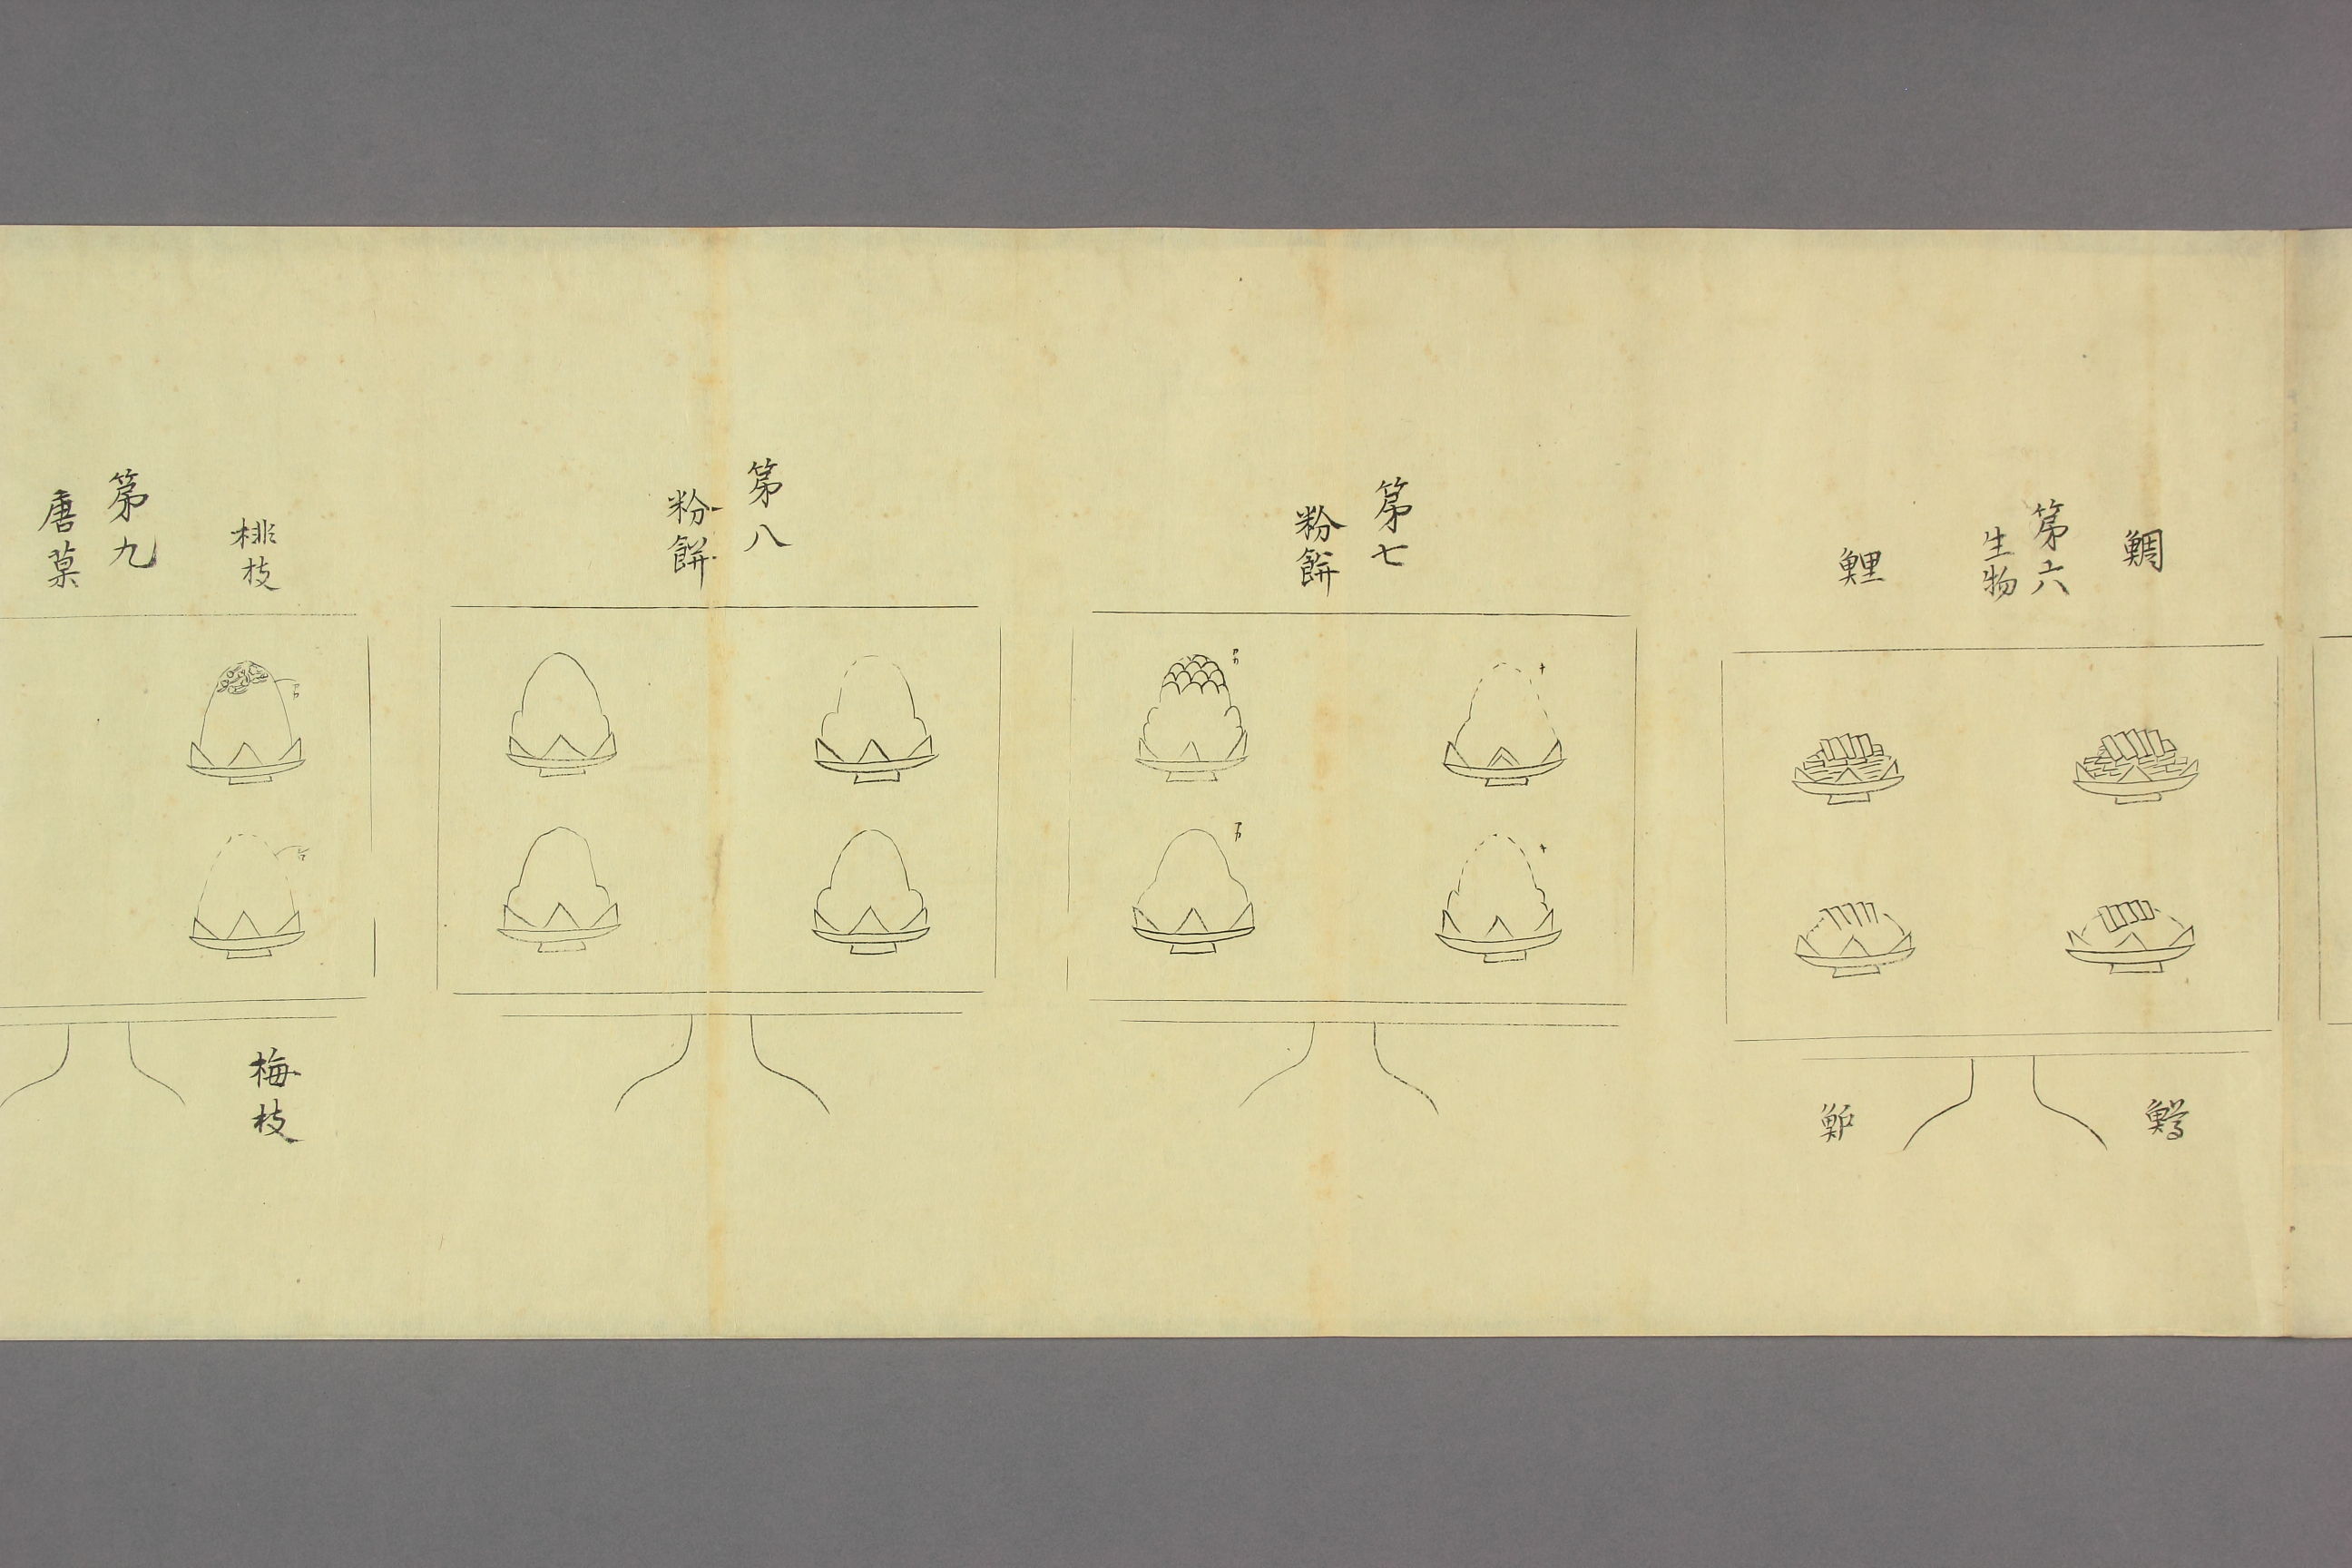 鯛
第六
生物
鯉
鱒
魲
第七
粉餅
第八
粉餅
桃枝
梅枝
第九
唐菓